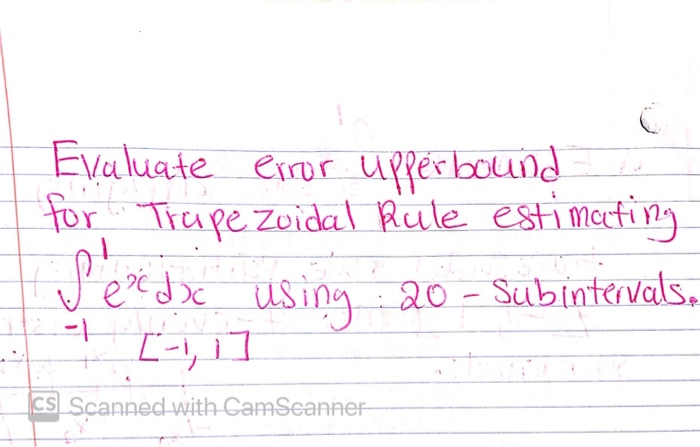 Evaluate error upperbound
for Trapezoidal Rule estimating
∫₋₁¹ eˣ dx using 20 - Subintervals.
[-1, 1]
CS Scanned with CamScanner